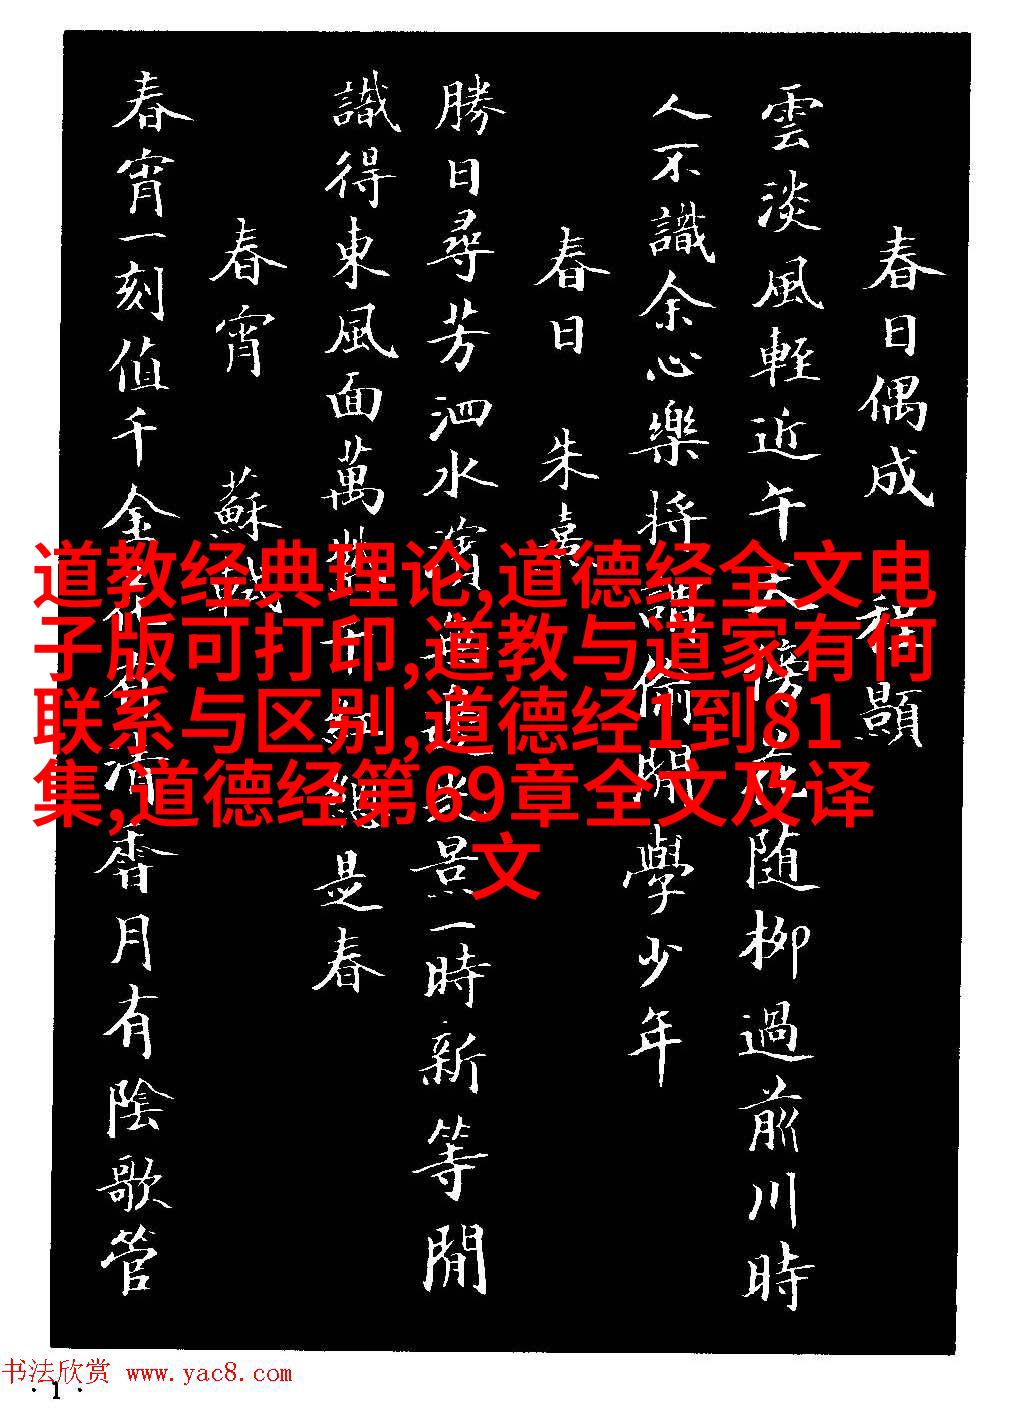 春日偶成 程顥
雲淡風輊近午天傍花随柳過前川時
人不識余心樂将謂偷閒學少年
春日 朱熹
勝日尋芳泗水濱無邊光景一時新等閒
識得東風面萬紫千紅總是春
春宵 蘇軾
春宵一刻值千金花有清香月有陰歌管
道教经典理论,道德经全文电
子版可打印,道教与道家有何
联系与区别,道德经1到81
集,道德经第69章全文及译
文
书法欣赏 www.yac8.com
·1·